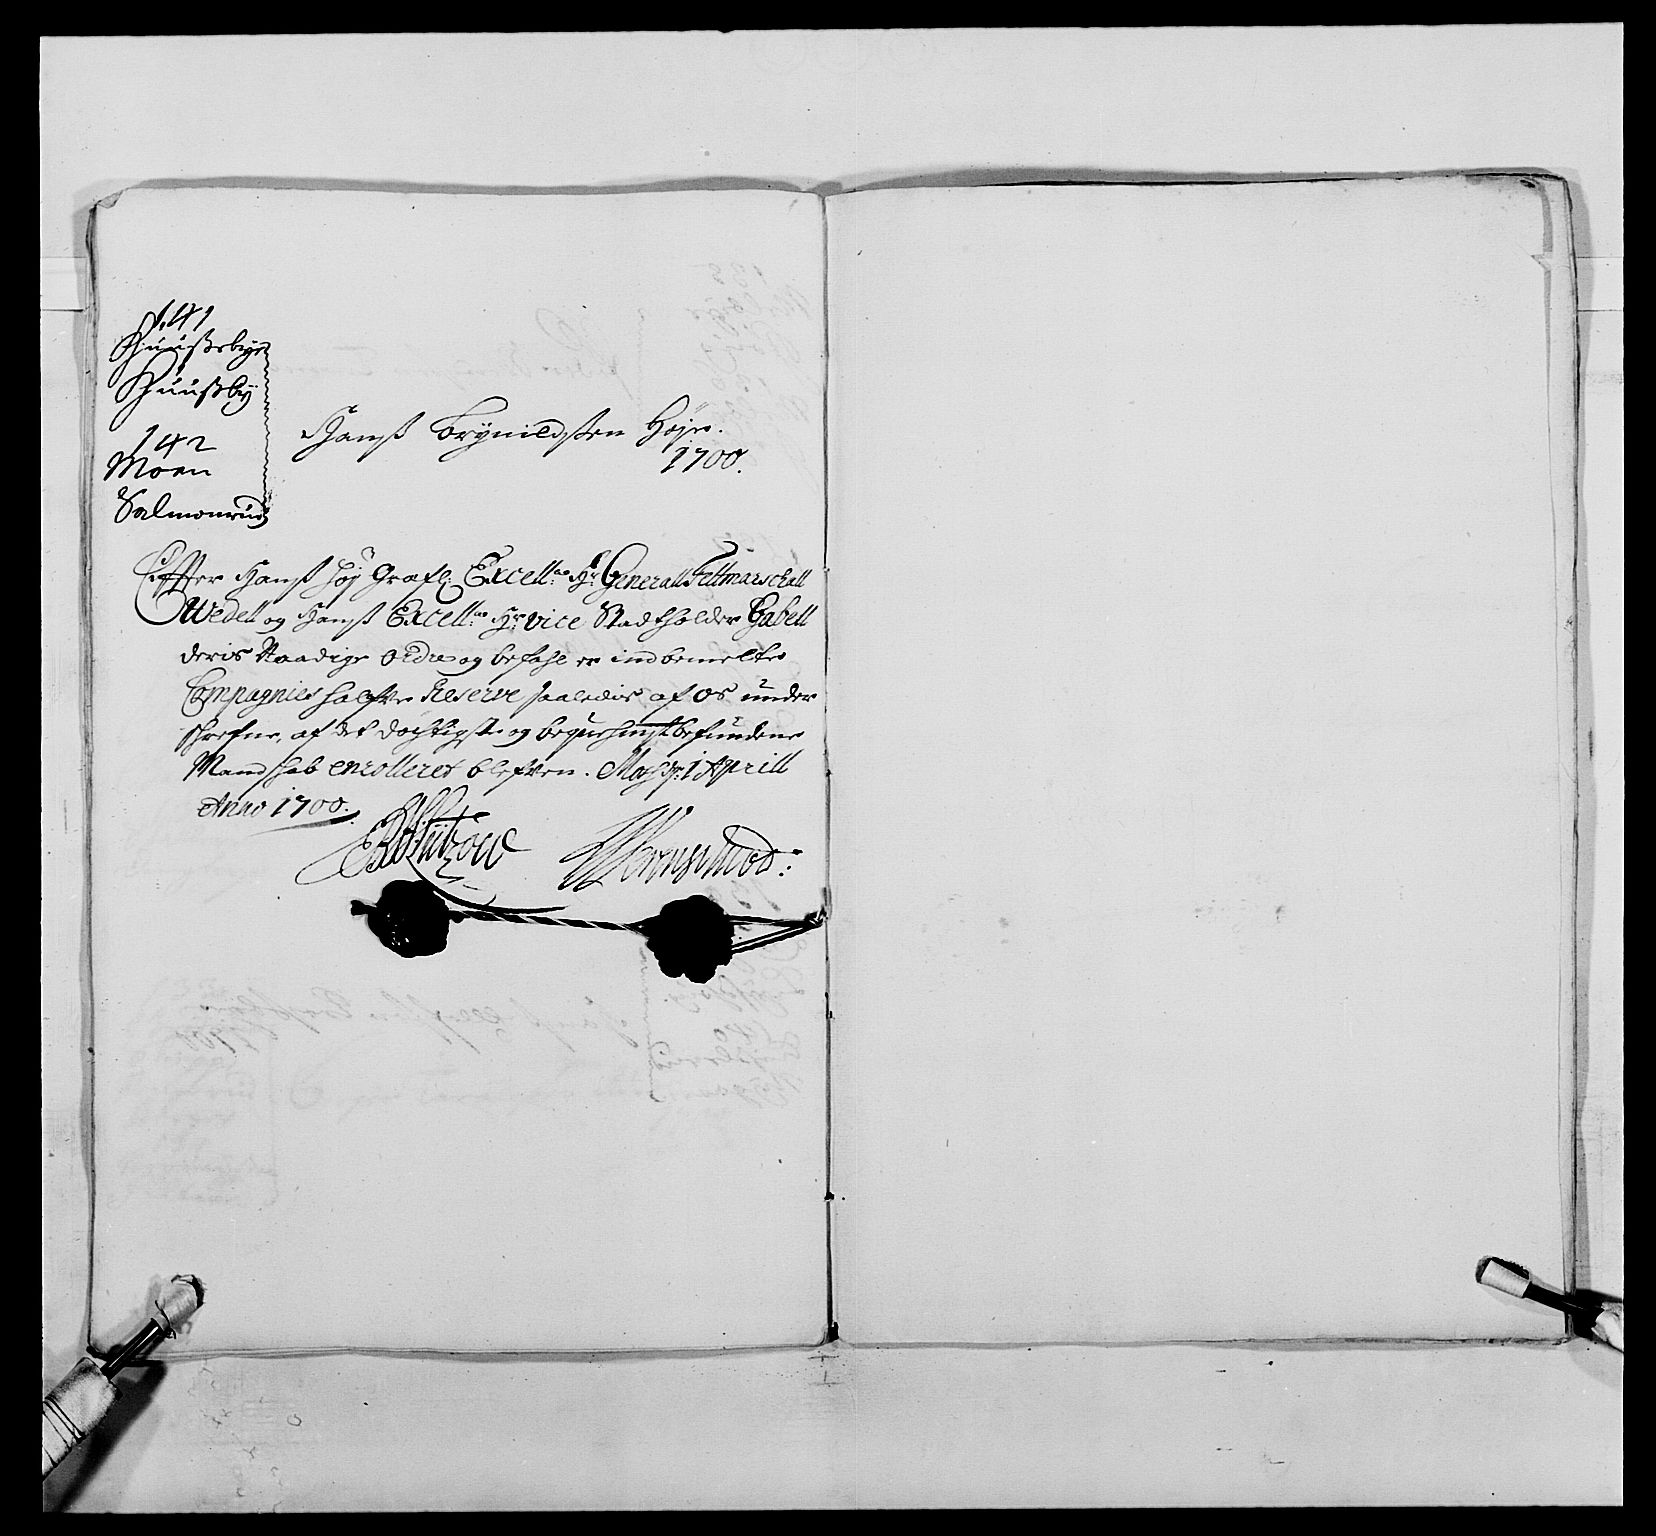 141
Huusebye
Huusby
142
Moen
Salmonrud
Hanß Brynildsen Høje.
1700.
Effter Hanß høj Grefl: Excell:ce Hr. Generall Feltmarschall
Wedell og Hanß Excell:ce Hr vice Stadtholder Gabell
deris Naadige ordre og befahl er indbemelte
Compagnies halfve Reserve saaledis af os under
schrefne, af det dochtigste og bequemmist befundene
Mandskab enrolleret blefven. Moss dr: 1 Aprill
Anno 1700.